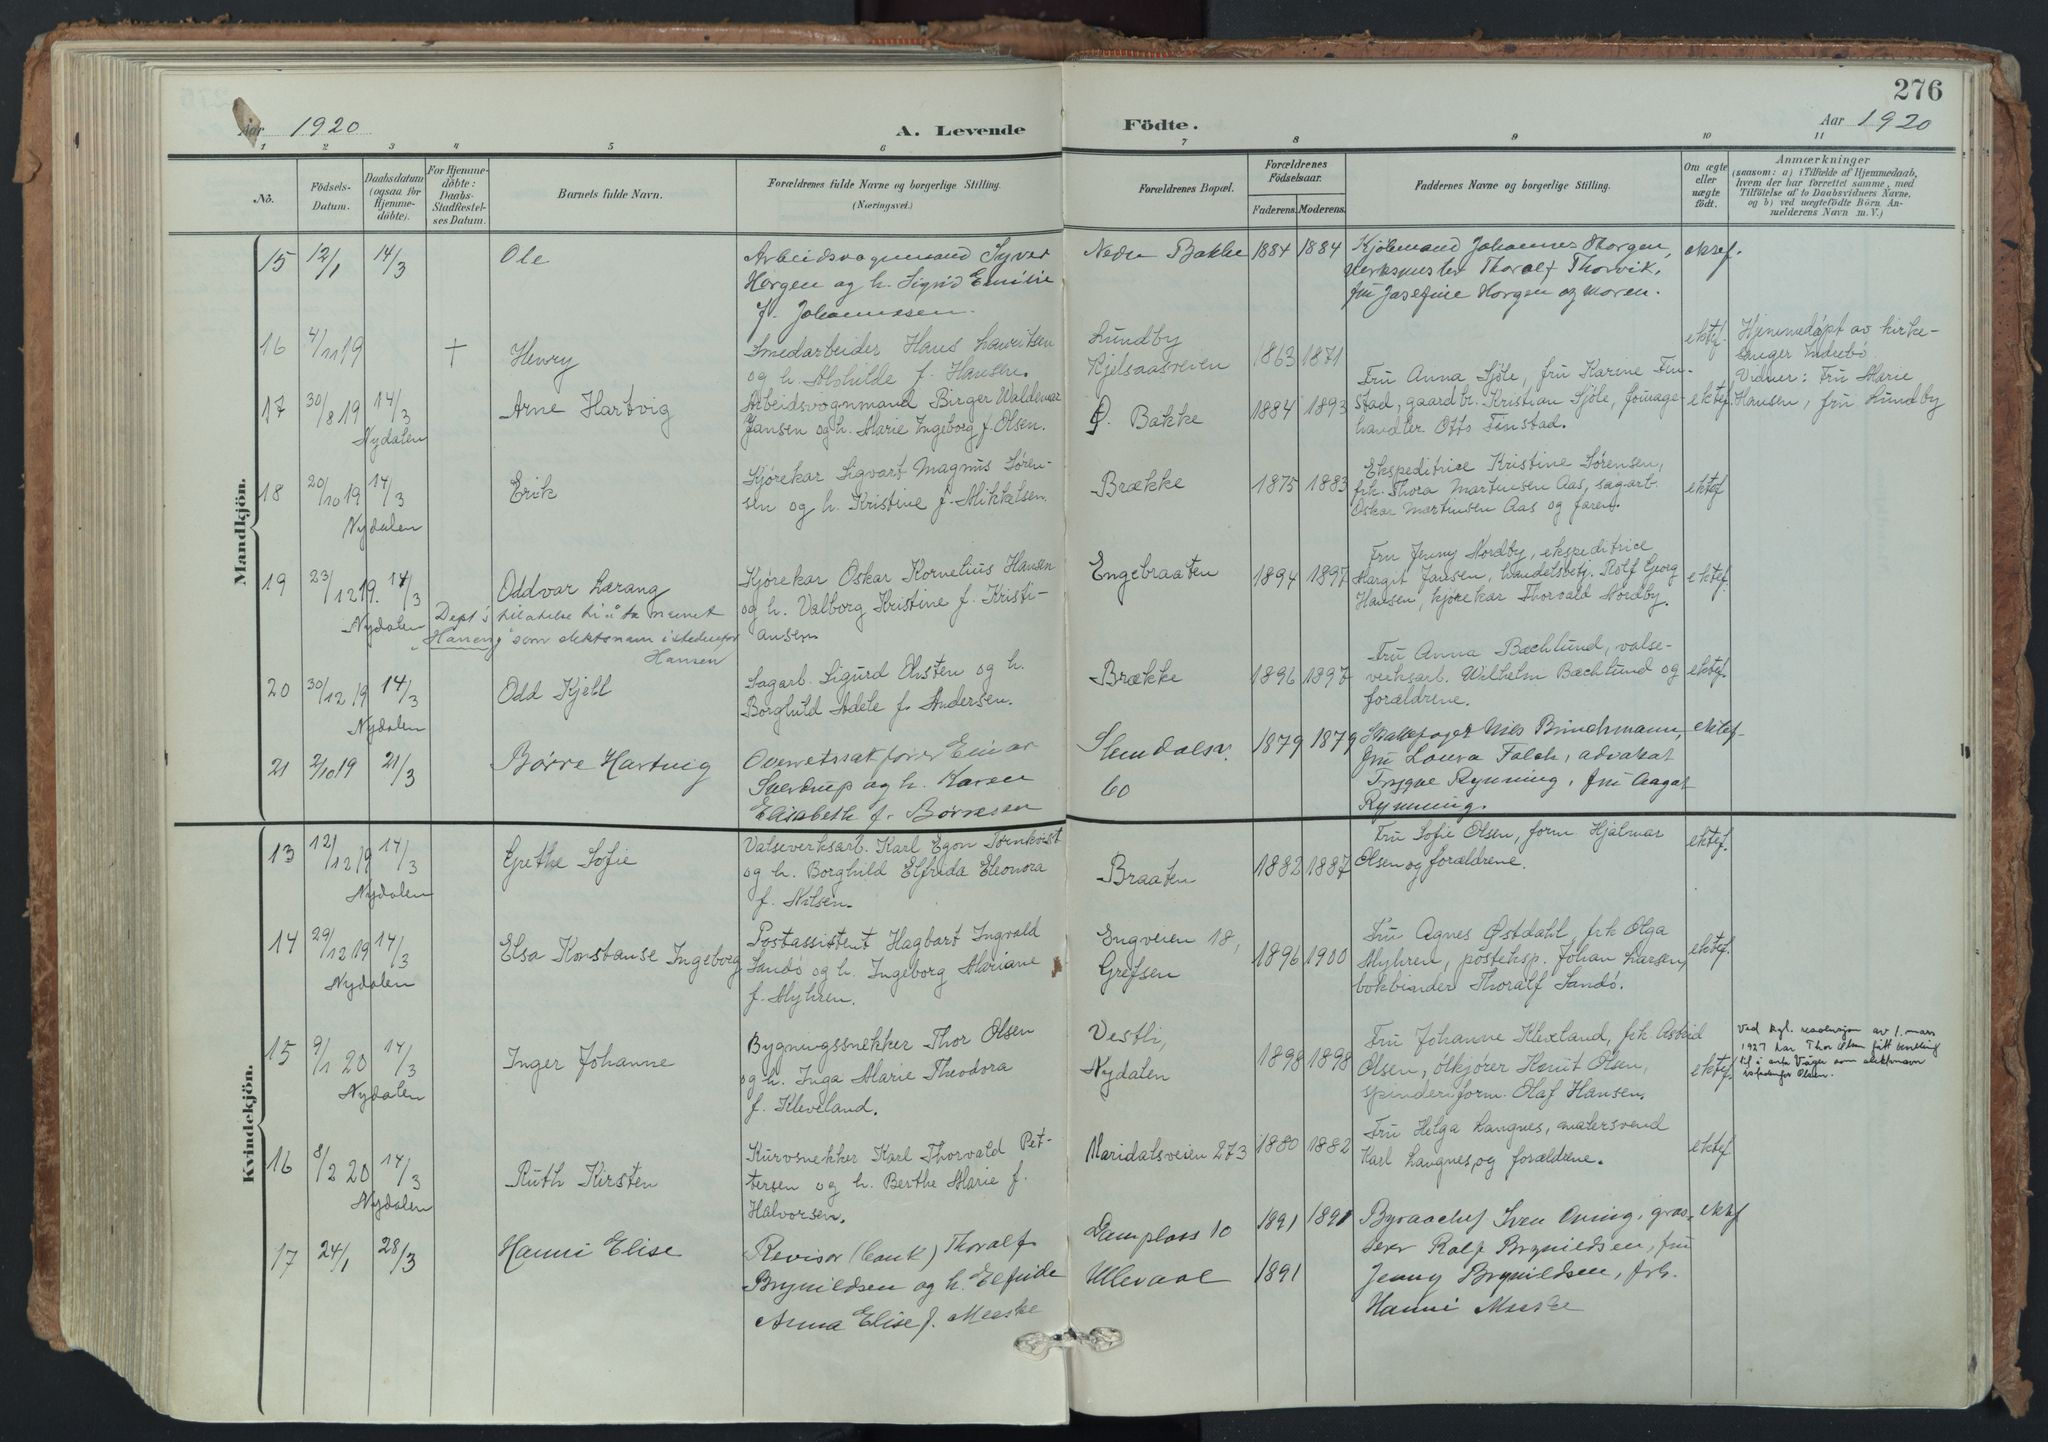 276
Aar 1920
A. Levende Födte.
Aar 1920
1 2 3 4 5 6 7 8 9 10 11
No.
Födsels-
Datum.
Daabsdatum
(ogsaa for
Hjemme-
döbte).
For Hjemme-
döbte:
Daabs-
Stadfæstel-
ses Datum.
Barnets fulde Navn.
Forældrenes fulde Navne og borgerlige Stilling.
(Næringsvei.)
Forældrenes Bopæl.
Forældrenes
Födselsaar.
Faderens. Moderens.
Faddernes Navne og borgerlige Stilling.
Om ægte
eller
uægte
födt.
Anmærkninger
(saasom: a) i Tilfælde af Hjemmedaab,
hvem der har forrettet samme, med
Tilföielse af to Daabsvidners Navne,
og b) ved uægtefödte Börn An-
melderens Navn m. V.)
Mandkjön.
15 12/1 14/3 Ole
Arbeidsvognmand Syver
Horgen og h. Sigrid Emilie
f. Johannessen.
Nedre Bakke 1884 1884
Kjøbmand Johannes Horgen,
Verksmester Thoralf Thorvik,
fru Josefine Horgen og moren.
ektef.
16 4/11 19 † Henry
Smedarbeider Hans Lauritsen
og h. Alvhilde f. Hansen.
Lundby
Kjelsaasveien 1863 1871
ektef.
Hjemmedøpt av kirke-
sanger Indrebø.
Vidner: Fru Marie
Hansen, fru Lundby
17 30/8 19 14/3 Arne Hartvig
Nydalen
Arbeidsvognmand Birger Waldemar
Jansen og h. Marie Ingeborg f. Olsen.
Ø. Bakke 1884 1893
Fru Anna Sjøle, fru Karine Fin-
stad, gaardbr. Kristian Sjøle, fourage-
handler Otto Finstad.
ektef.
18 20/10 19 14/3 Erik
Nydalen
Kjørekar Sigvart Magnus Søren-
sen og h. Kristine f. Mikkelsen.
Brække 1875 1883
Ekspeditrice Kristine Sørensen,
frk. Thora Martinsen Aas, sagarb.
Oskar Martinsen Aas og faren.
ektef
19 23/12 19. 14/3 Oddvar Larang
Nydalen
Kjørekar Oskar Kornelius Hansen
og h. Valborg Kristine f. Kristi-
ansen.
Engebraaten 1894 1897
Fru Jenny Nordby, ekspeditrice
Margit Jansen, handelsbetj. Rolf Georg
Hansen, kjørekar Thorvald Nordby.
ektef.
Dept's tilatelse til å ta navnet
som slektsnavn istedenfor
Hansen
20 30/12 19 14/3 Odd Kjell
Nydalen
Sagarb. Sigurd Olsten og h.
Borghild Adele f. Andersen.
Brække 1896 1897
Fru Anna Bæchlund, valse-
verksarb. Wilhelm Bæchlund og
forældrene.
ektef.
21 2/10 19 21/3 Børre Hartvig
Overretssakfører Einar
Sverdrup og h. Karen
Elisabeth f. Børresen
60
1879 1879
Nils Brinchmann,
fru Laura Falch, advokat
Trygve Rynning, fru Aagot
Rynning.
ektef
Kvindekjön.
13 12/12 19 14/3 Grethe Sofie
Nydalen
Valseverksarb. Karl Egon Törnkvist
og h. Borghild Elfrida Eleonora
f. Nilsen.
Braaten 1882 1887
Fru Sofie Olsen, form. Hjalmar
Olsen og forældrene.
ektef.
14 29/12 19 14/3 Elsa Konstanse Ingeborg
Nydalen
Postassistent Hagbart Ingvald
Sandö og h. Ingeborg Mariane
f. Myhren.
Engveien 18,
Grefsen 1896 1900
Fru Agnes Østdahl, frk Olga
Myhren, posteksp. Johan Larsen,
bokbinder Thoralf Sandö.
ektef.
15 9/1 20 14/3 Inger Johanne
Nydalen
Bygningssnekker Thor Olsen
og h. Inga Marie Theodora
f. Kleveland.
Vestli,
Nydalen 1898 1898
Fru Johanne Kleveland, frk Astrid
Olsen, ölkjører Olsen,
spinderiform. Olaf Hansen.
ektef.
Ved kgl. resolusjon av 1. mars
1927 har Thor Olsen fått bevilling
til å anta som slektsnavn
istedenfor Olsen.
16 8/2 20 14/3 Ruth Kirsten
Nydalen
Kurvsnekker Karl Thorvald Pet-
tersen og h. Berthe Marie f.
Halvorsen.
Maridalsveien 273 1880 1882
Fru Helga Langnes, malersvend
Karl Langnes, og forældrene.
ektef.
17 24/1 28/3 Hanni Elise
Revisor (bank) Thoralf
Brynildsen og h. Elfride
Anna Elise f. Meeske
Damplass 10
Ullevaal
1891 1891
1891
Byraachef Sven Oning, gros-
serer Rolf Brynildsen, fru
Jenny Brynildsen, frk.
Hanni Meeske
ektef